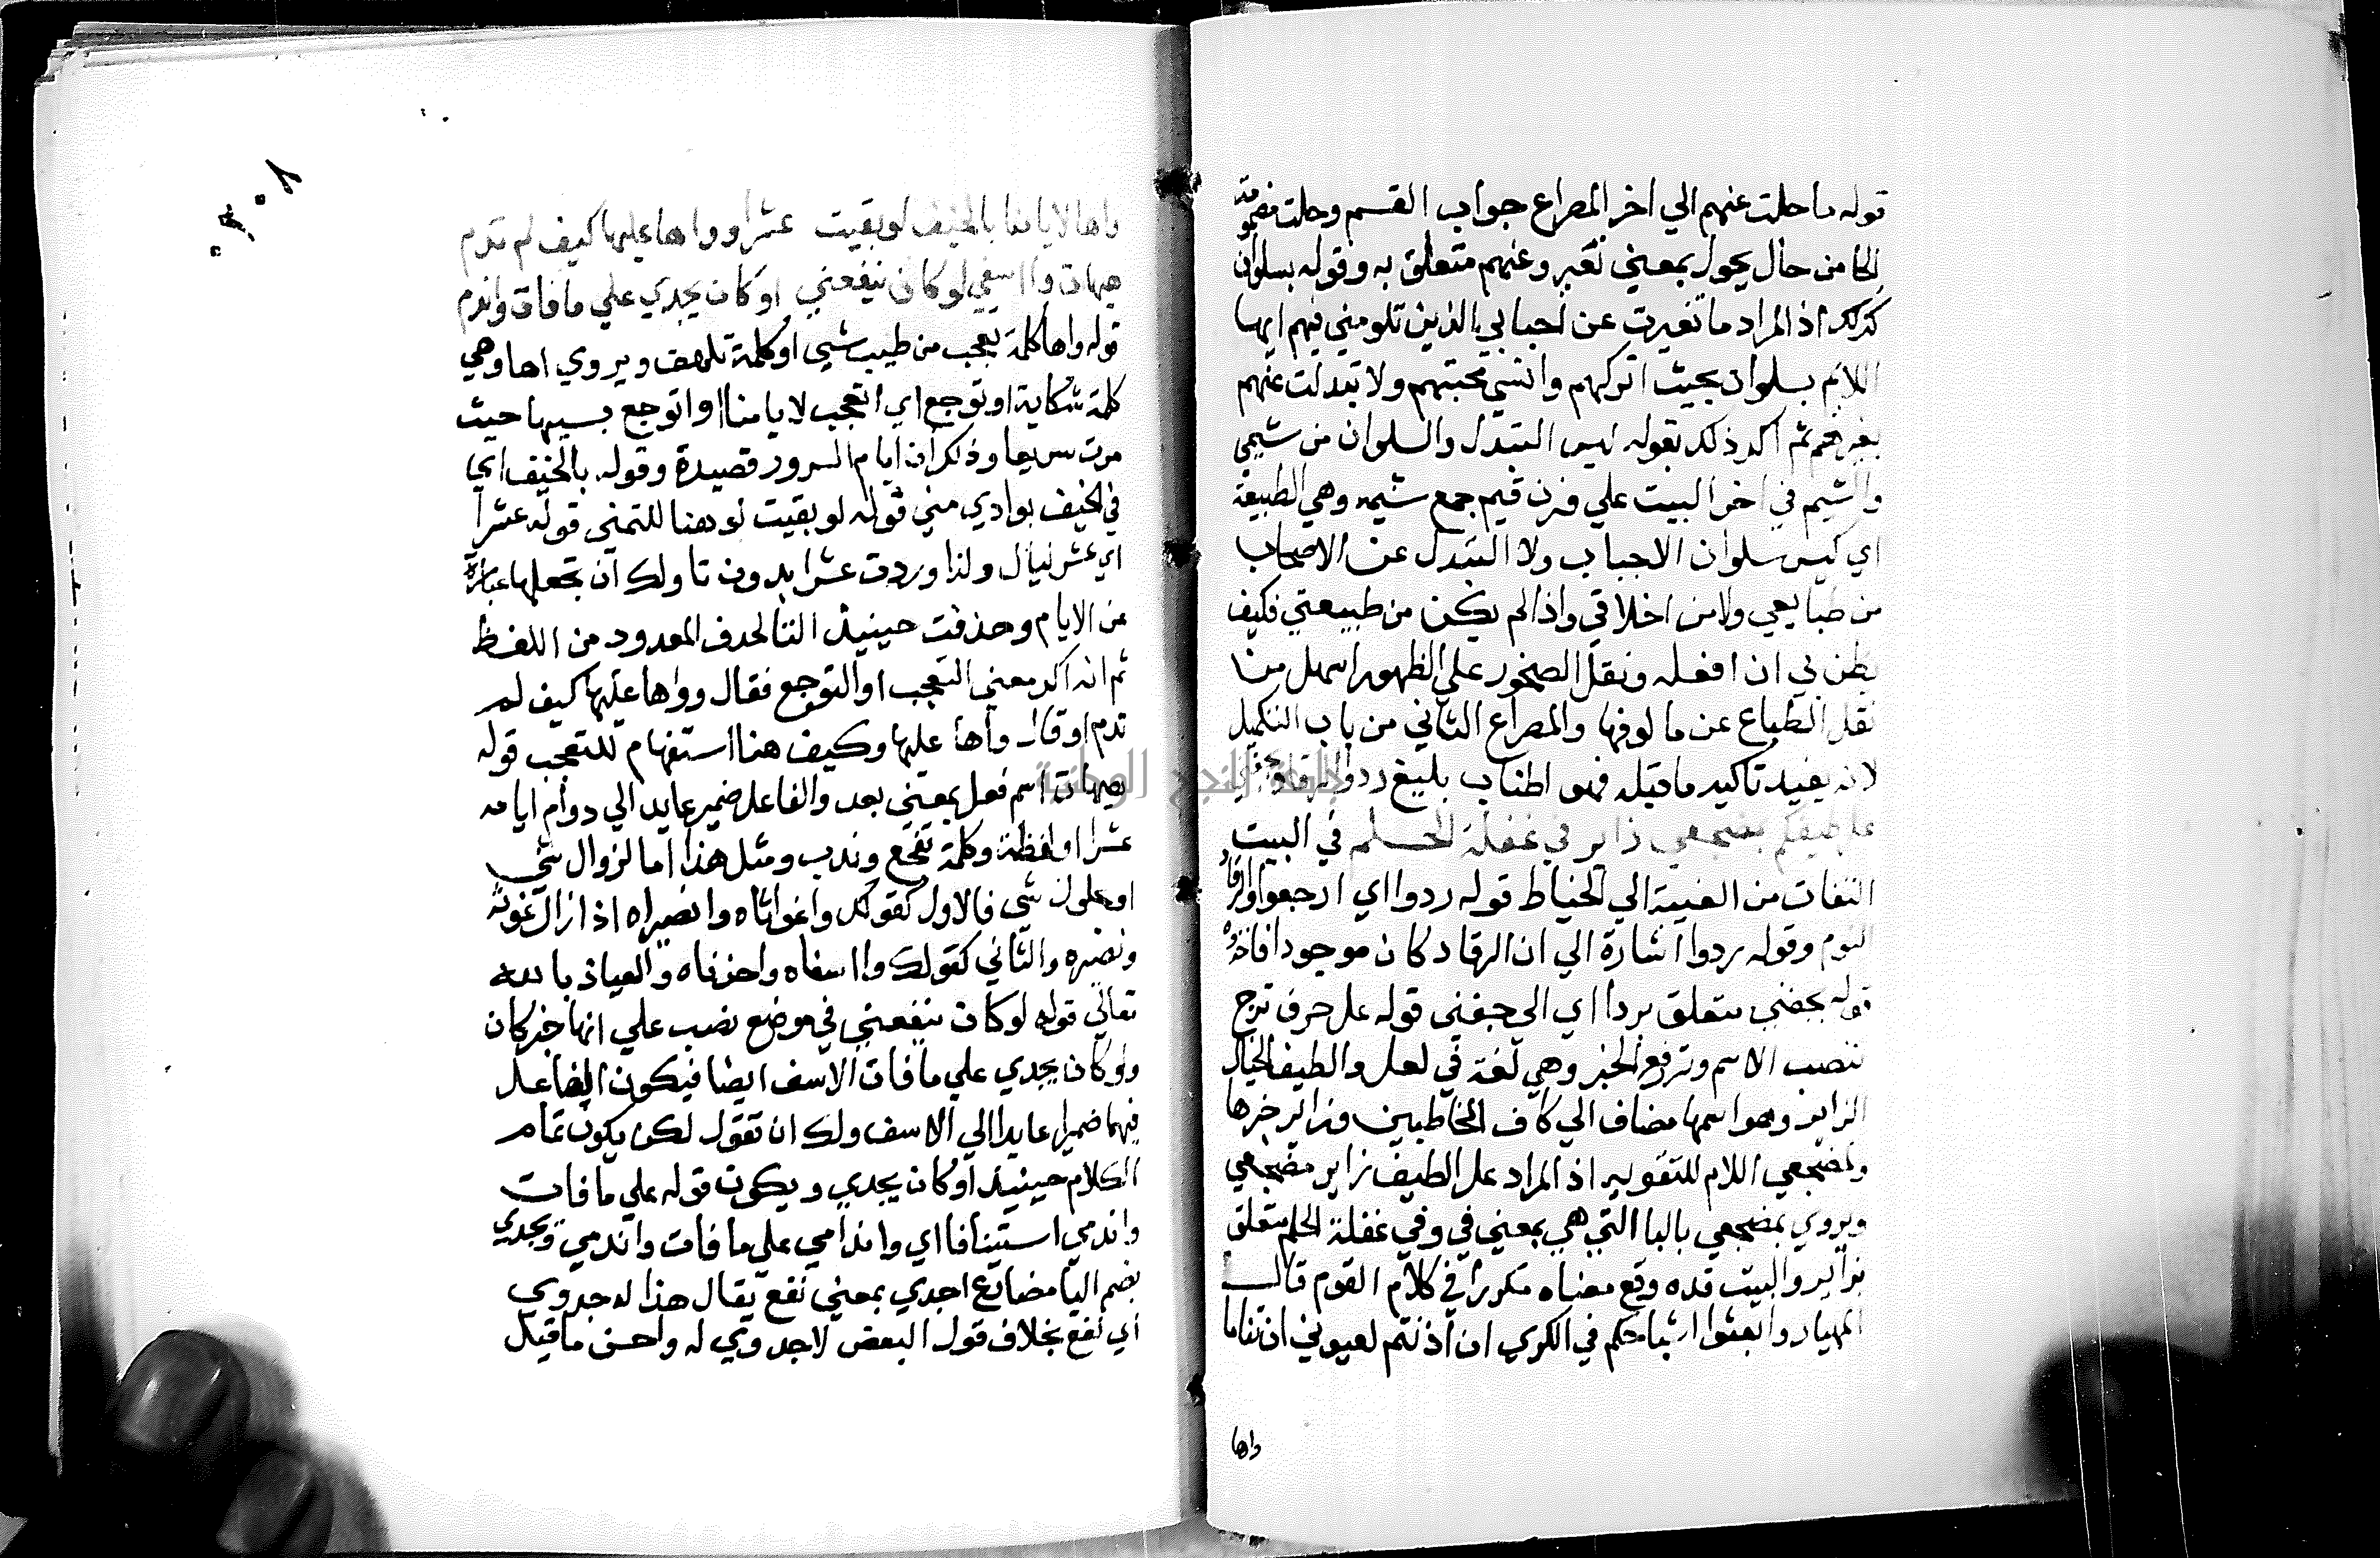 قوله ما حلت عنهم الي اخر المصراع جواب القسم وحلت مضمومة
الحا من حال يحول بمعني تغير وعنهم متعلق به وقوله بسلوان
كذلك اذ المراد ما تغيرت عن احبابي الذين تلومني فيهم ايها
اللايم بسلوان بحيث اتركهم وانسي محبتهم ولا تبدلت عنهم
بغيرهم ثم اكد ذلك بقوله ليس التبدل والسلوان من شيمي
والشيم في اخر البيت علي وزن قيم جمع شيمه وهي الطبيعة
اي ليس سلوان الاحباب ولا التبدل عن الاصحاب
من طبايعي ولا من اخلاقي واذا لم يكن من طبيعتي فكيف
يظن بي ان افعله ونقل الصخور علي الظهور اسهل من
نقل الطباع عن مالوفها والمصراع الثاني من باب التكميل
لانه يفيد تاكيد ما قبله فهو اطناب بليغ ردوا الرقاد لجفني
عل طيفكم بمضجعي زاير في غفلة الحلم في البيت
التفات من الغيبة الي الخطاب قوله ردوا اي ارجعوا والرقاد
النوم وقوله ردوا اشارة الي ان الرقاد كان موجودا فاخذوه
قوله لجفني متعلق بردا اي الي جفني قوله عل حرف ترج
تنصب الاسم وترفع الخبر وهي لغة في لعل والطيف الخيال
الزاير وهو اسمها مضاف الي كاف المخاطبين وزاير خبرها
ولمضجعي اللام للتقويه اذ المراد عل الطيف زاير مضجعي
ويروي بمضجعي بالبا التي هي بمعني في وفي غفلة الحلم متعلق
بزاير والبيت قده وقع معناه مكررا في كلام القوم قال
المهيار وابعثوا اشباحكم في الكري ان اذنتم لعيوني ان تناما
واها
٣٠٨
واها لايامنا بالخيف لو بقيت عشرا وواها عليها كيف لم تدم
هيهات وااسفي لو كان ينفعني او كان يجدي علي ما فات واندم
قوله واها كلمة تعجب من طيب شي او كلمة تلهف ويروي اها وهي
كلمة شكاية او توجع اي اتعجب لايامنا او اتوجع بسببها حيث
مرت سريعا وذلك ان ايام السرور قصيرة وقوله بالخيف اي
في الخيف بوادي مني قوله لو بقيت لو هنا للتمني قوله عشرا
اي عشر ليال ولذا وردت عشرا بدون تا ولك ان تجعلها عبارة
عن الايام وحذفت حينيذ التا لحذف المعدود من اللفظ
ثم انه اكد معني التعجب او التوجع فقال وواها عليها كيف لم
تدم او قال واها عليها وكيف هنا استفهام للتعجب قوله
هيهات اسم فعل بمعني بعد والفاعل ضمير عايد الي دوام ايامه
عشرا او لفظة وكلمة تفجع وندب ومثل هذا اما لزوال شي
او حلول شي فالاول كقولك واغواثاه وانصيراه اذا زال غوثه
ونصيره والثاني كقولك وااسفاه واحزناه والعياذ بالله
تعالي قوله لو كان ينفعني في موضع نصب علي انها خبر كان
ولو كان يجدي علي ما فات الاسف ايضا فيكون الفاعل
فيهما ضميرا عايدا الي الاسف ولك ان تقول لكن يكون تمام
الكلام حينيذ او كان يجدي ويكون قوله علي ما فات
واندمي استينافا اي واندامي علي ما فات واندمي ويجدي
بضم اليا مضارع اجدي بمعني نفع يقال هذا له جدوي
اي نفع بخلاف قول البعض لا جدوي له واحسن ما قيل